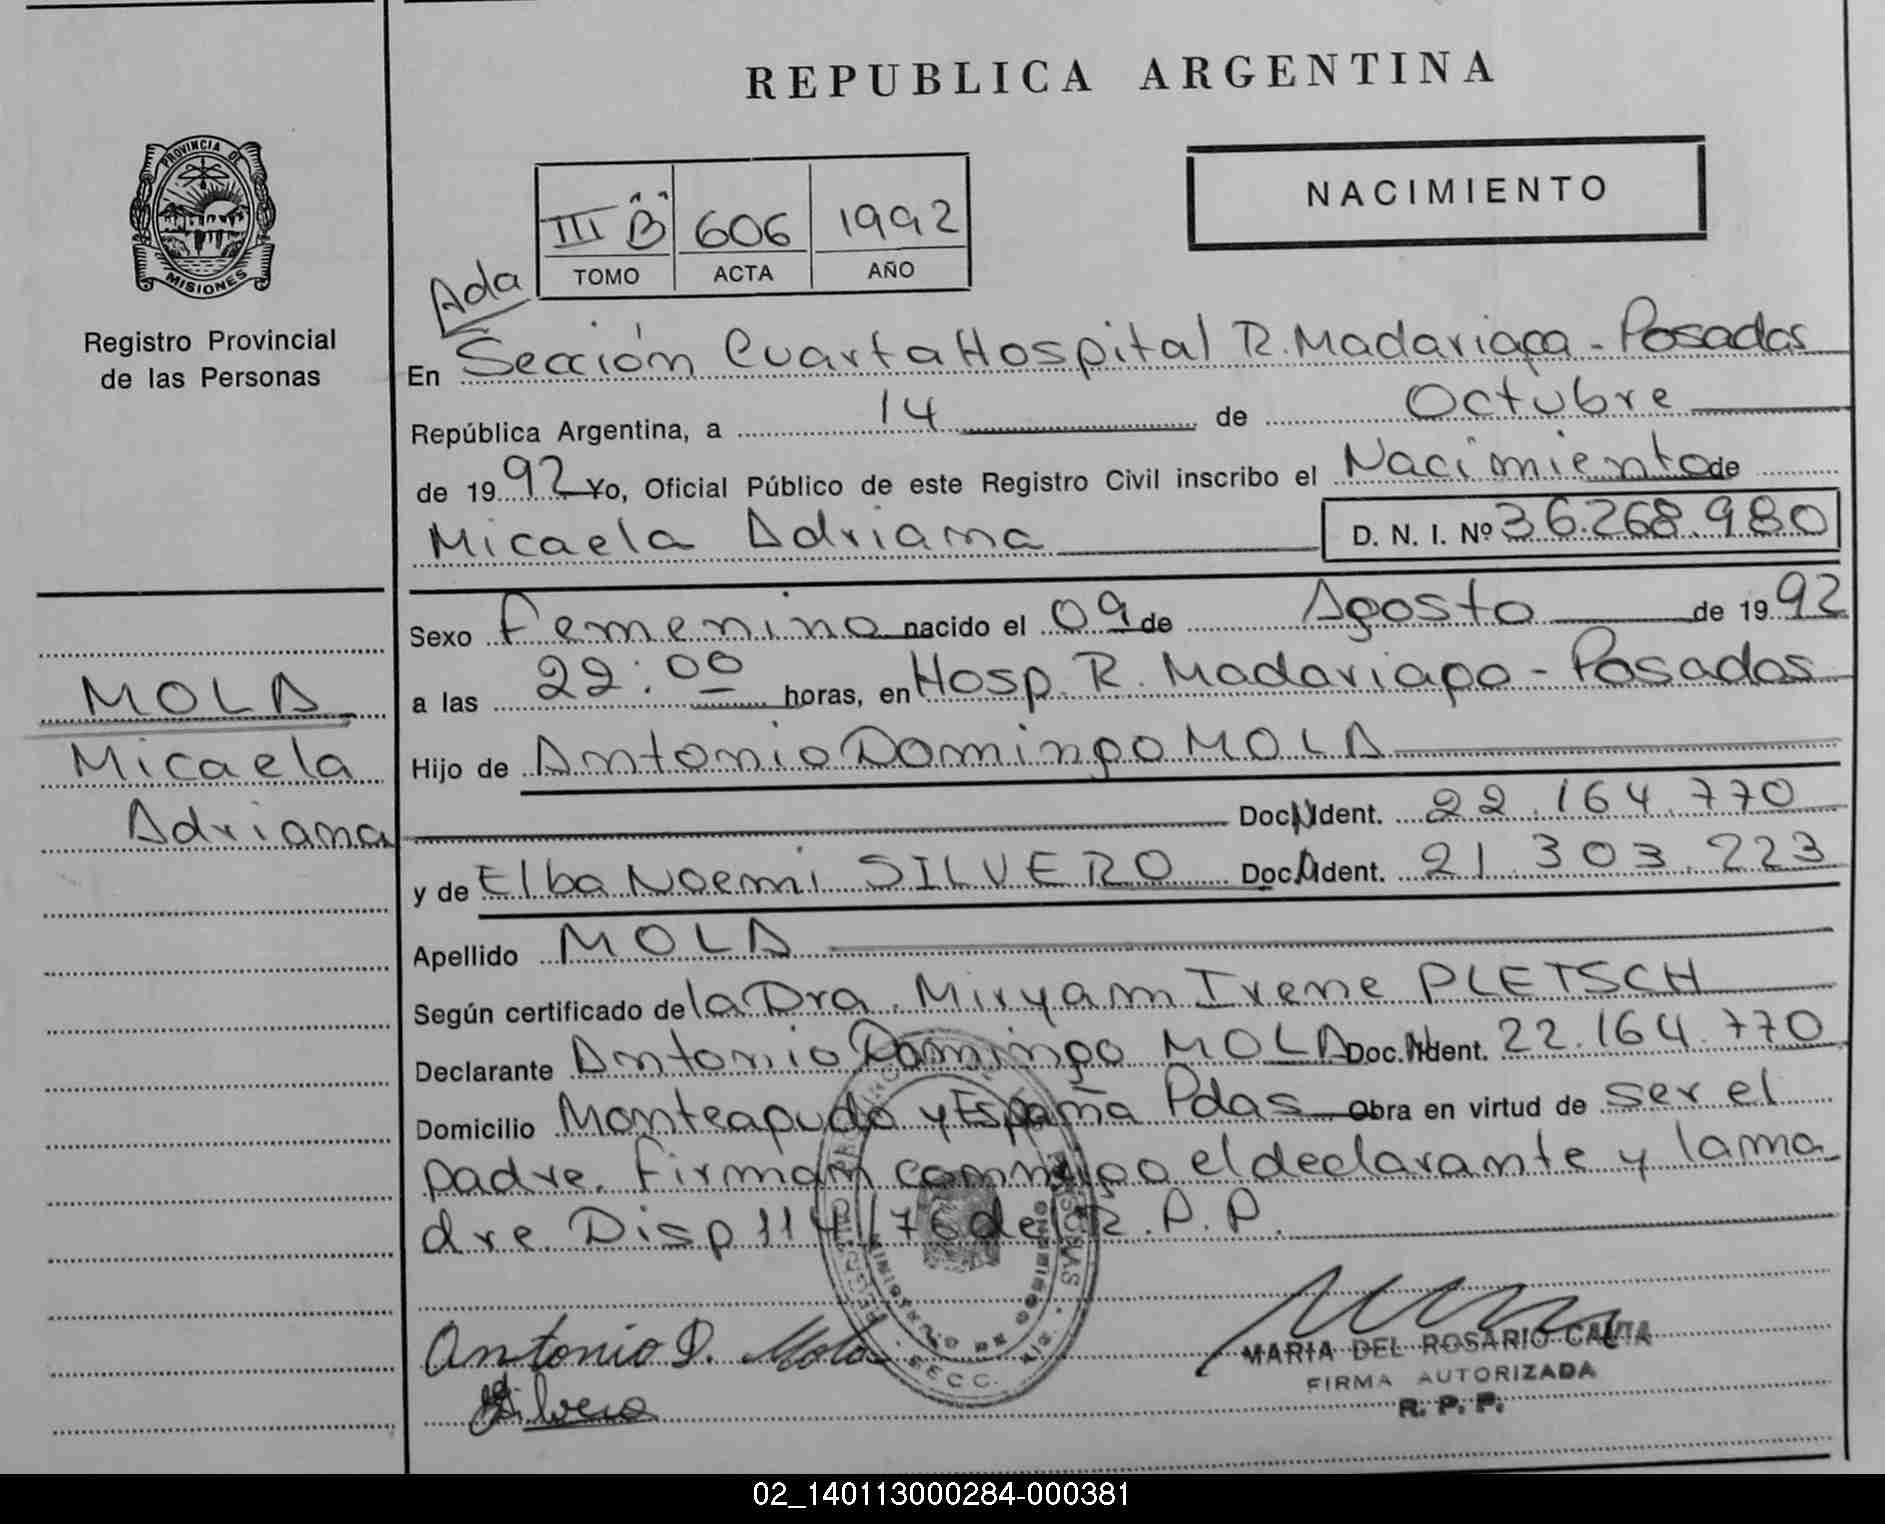 REPUBLICA ARGENTINA
PROVINCIA DE
MISIONES
Registro Provincial
de las Personas
NACIMIENTO
III "B" 606 1992
TOMO ACTA AÑO
Ada
En Sección Cuarta Hospital R. Madariaga - Posadas
República Argentina, a 14 de Octubre
de 1992 Yo, Oficial Público de este Registro Civil inscribo el Nacimiento de
Micaela Adriana D. N. I. Nº 36.268.980
Sexo Femenino nacido el 09 de Agosto de 1992
a las 22:00 horas, en Hosp. R. Madariaga - Posadas
Hijo de Antonio Domingo MOLA
Doc. Ident. 22.164.770
y de Elba Noemi SILVERO Doc. Ident. 21.303.223
Apellido MOLA
Según certificado de la Dra. Miryam Irene PLETSCH
Declarante Antonio Domingo MOLA Doc. Ident. 22.164.770
Domicilio Monteagudo y España Pdas Obra en virtud de ser el
padre. Firman conmigo el declarante y la ma
dre Disp 114/76 del R.P.P.
MOLA
Micaela
Adriana
Antonio D. Mola
Silvero
MARIA DEL ROSARIO
FIRMA AUTORIZADA
R. P. P.
02_140113000284-000381